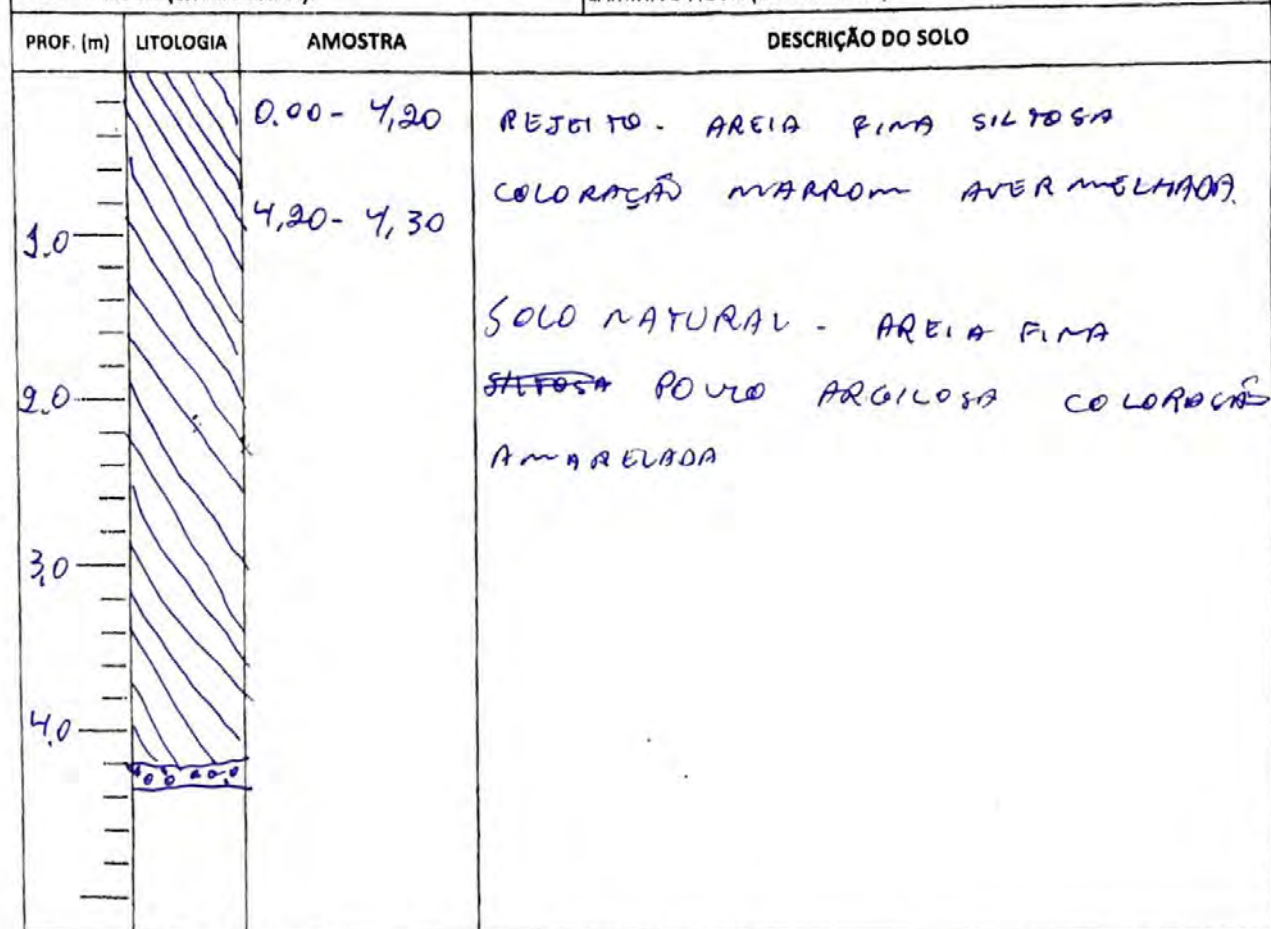 PROF. (m) LITOLOGIA AMOSTRA DESCRIÇÃO DO SOLO
0.00 - 4,20 REJEITO - AREIA FINA SILTOSA
COLORAÇÃO MARROM AVERMELHADA.
1.0 4,20 - 4,30
SOLO NATURAL - AREIA FINA
2.0 SILTOSA POUCO ARGILOSA COLORAÇÃO
AMARELADA
3,0
4,0